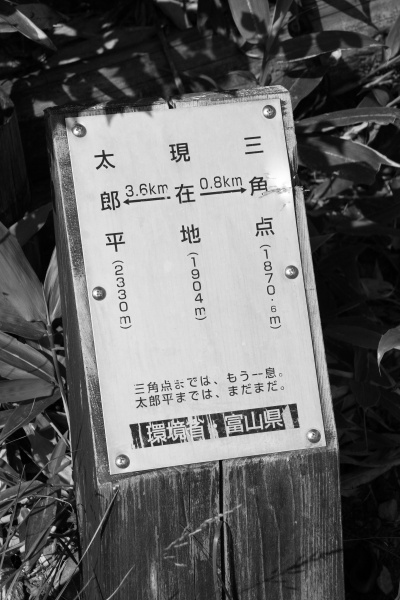 三角点(1870.6m)
0.8km
現在地(1904m)
3.6km
太郎平(2330m)
三角点までは、もう一息。
太郎平までは、まだまだ。
環境省・富山県